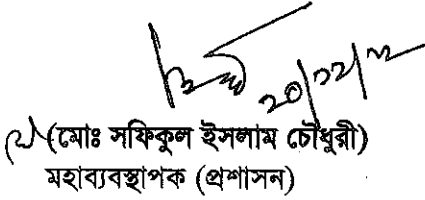 ২০/১১/১২
(মোঃ সফিকুল ইসলাম চৌধুরী)
মহাব্যবস্থাপক (প্রশাসন)